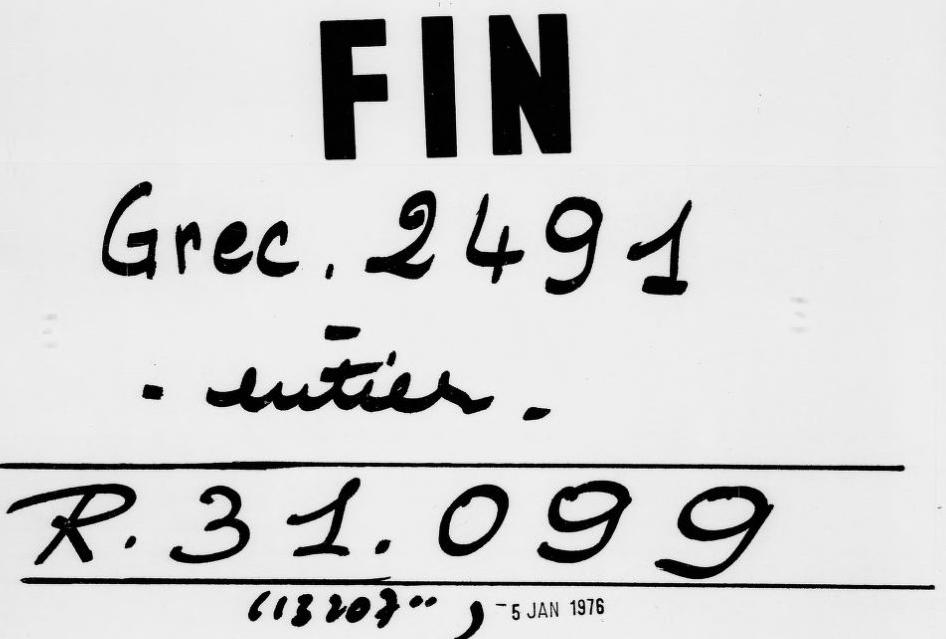 FIN
Grec. 2491
-
- entier -
R. 31.099
5 JAN 1976